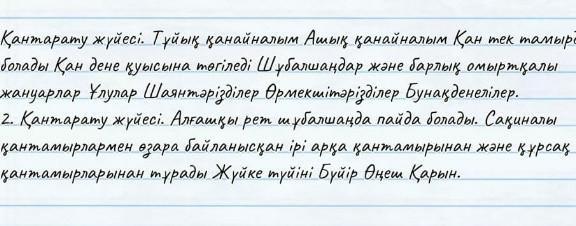 Қантарату жүйесі. Тұйық қанайналым Ашық қанайналым Қан тек
болады Қан дене қуысына төгіледі Шұбалшаңдар және барлық омыртқалы
жануарлар Ұлулар Шаянтәрізділер Өрмекшітәрізділер Бунақденелілер.
2. Қантарату жүйесі. Алғашқы рет шұбалшаңда пайда болады. Сақиналы
қантамырлармен өзара байланысқан ірі арқа қантамырынан және құрсақ
қантамырларынан тұрады Жүйке түйіні Бүйір Өңеш Қарын.